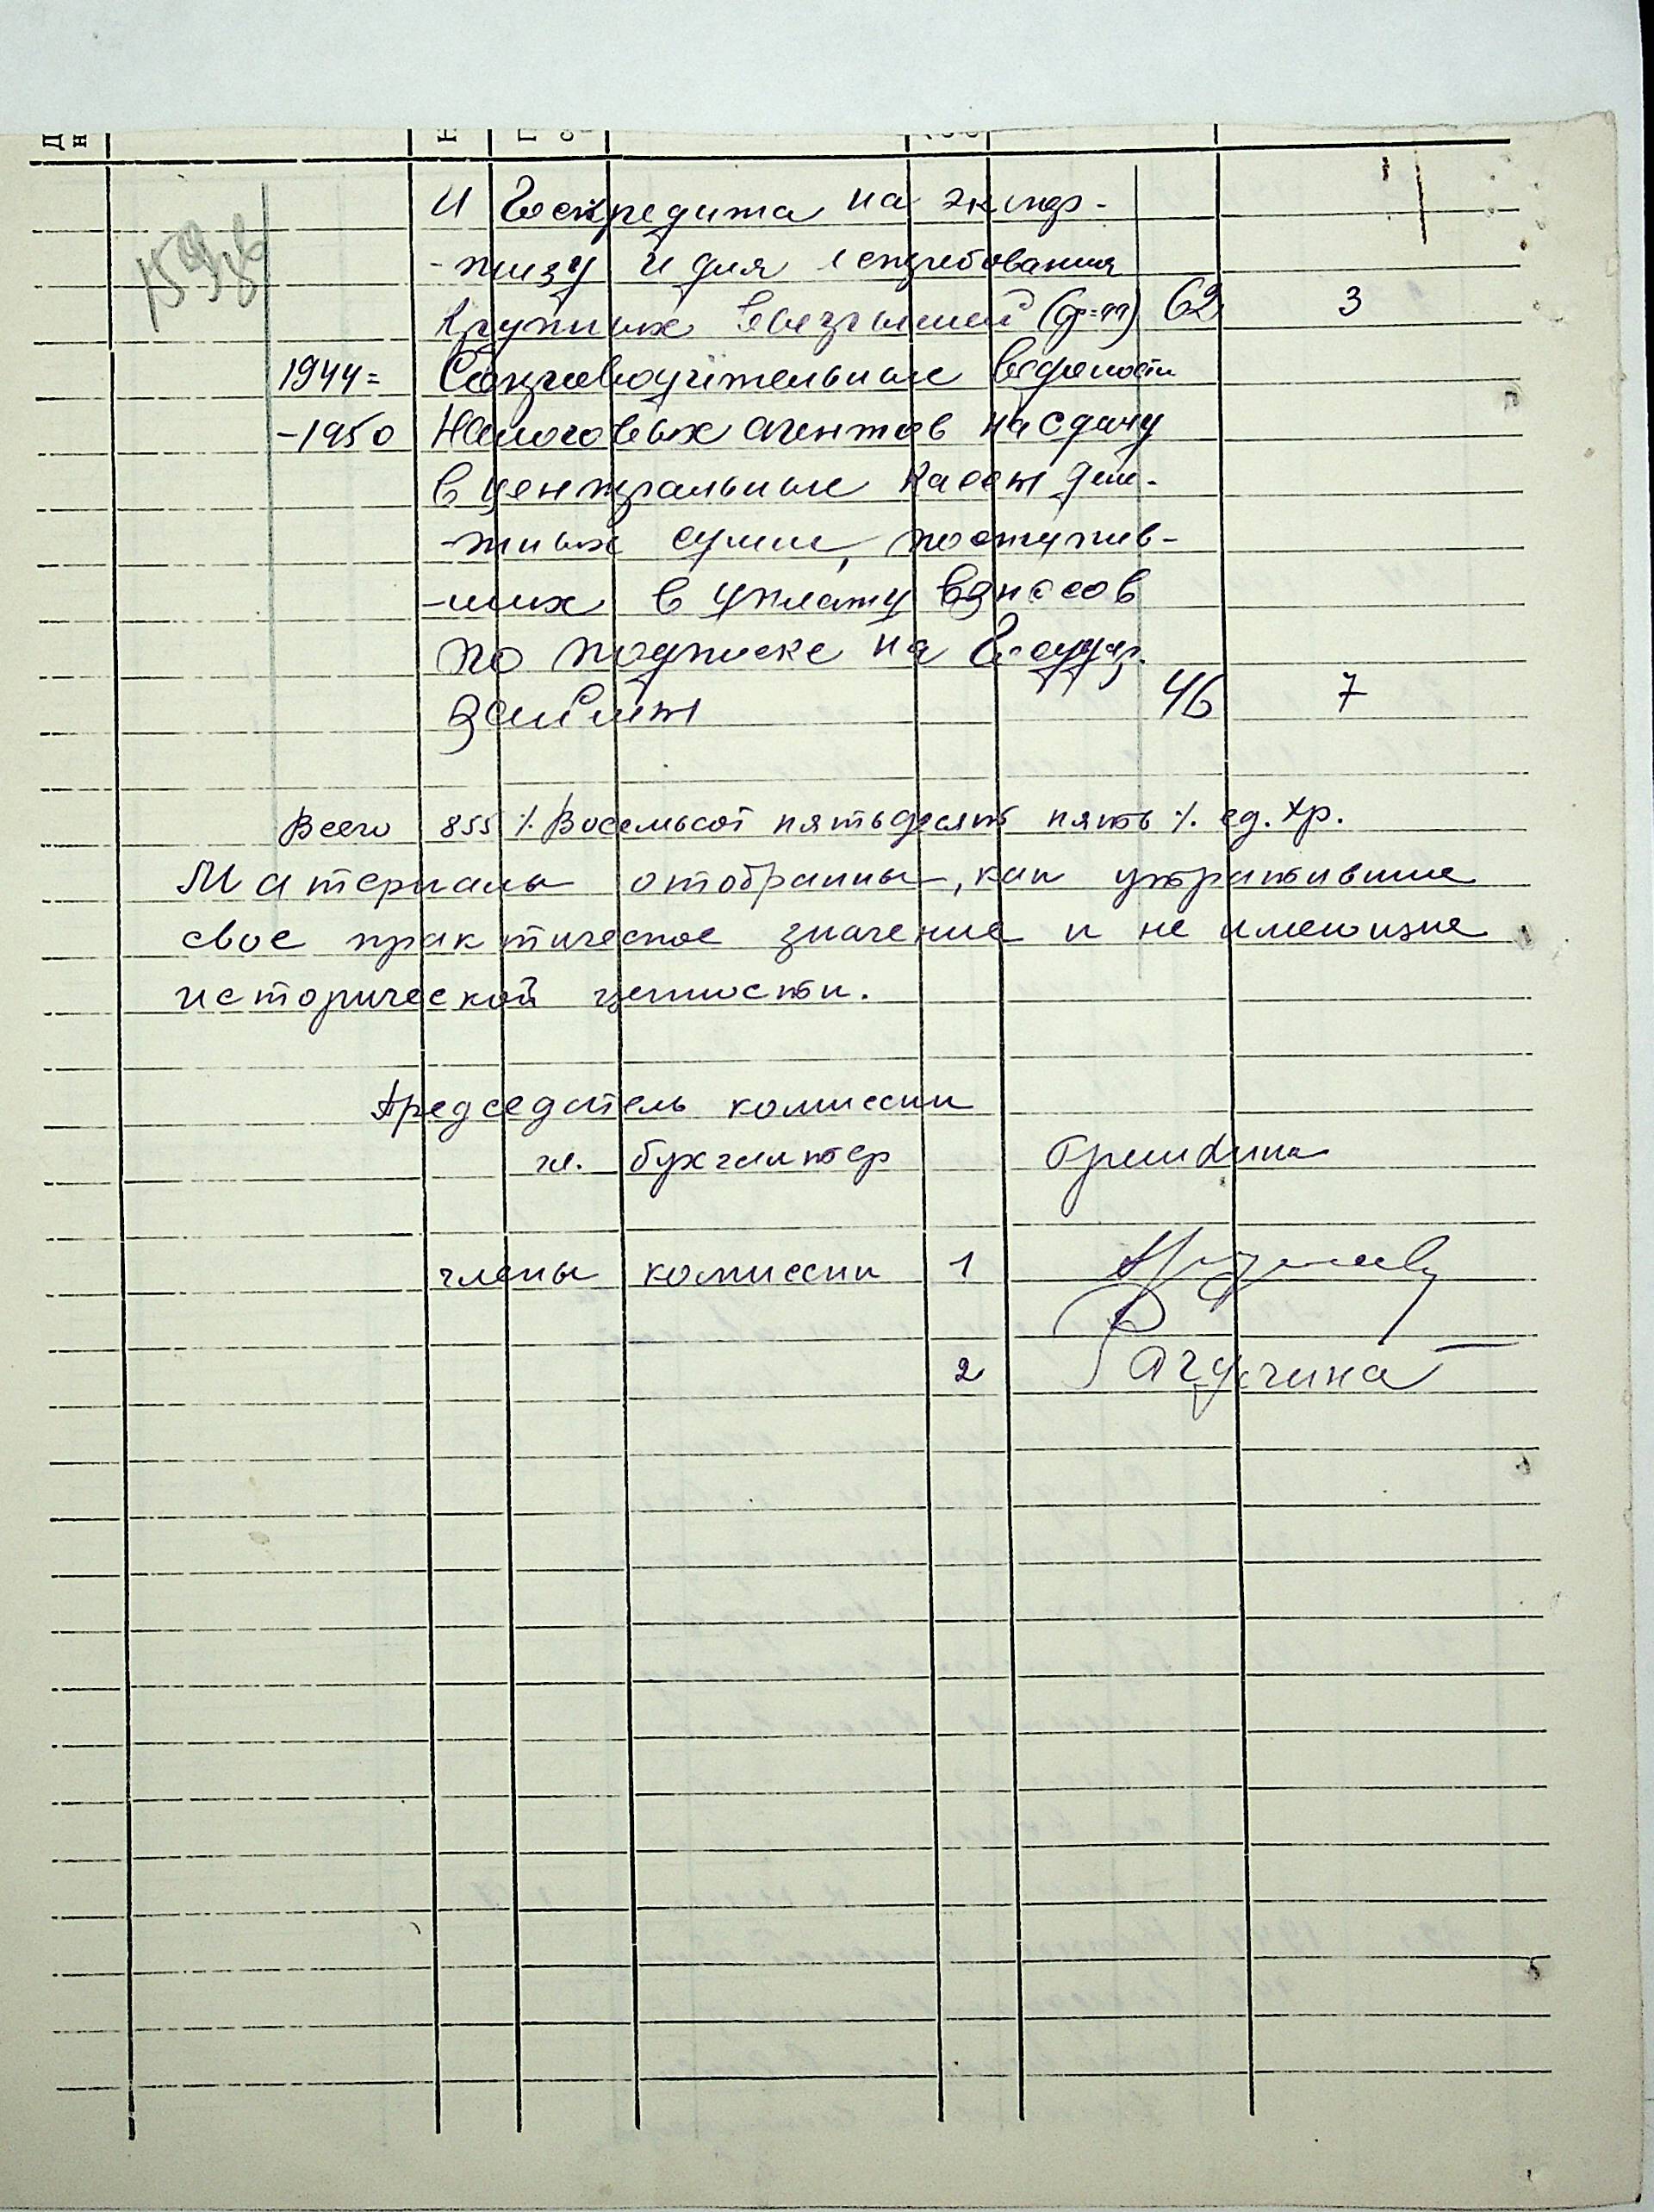 и Госкредита на экспер-
-тизу и для истребования
крупных выигрышей 62 3
1944= Сопроводительные ведомости
-1950 Налоговых агентов на сдачу
в центральные кассы денеж-
-ных сумм, поступив-
-ших в уплату взносов
по подписке на Государ.
займы 46 7
Всего 855 /. Восемьсот пятьдесят пять /. ед. хр.
Материалы отобраны, как утратившие
свое практическое значение и не имеющие
исторической ценности.
Председатель комиссии
гл. бухгалтер Гришкина
члены комиссии 1
2